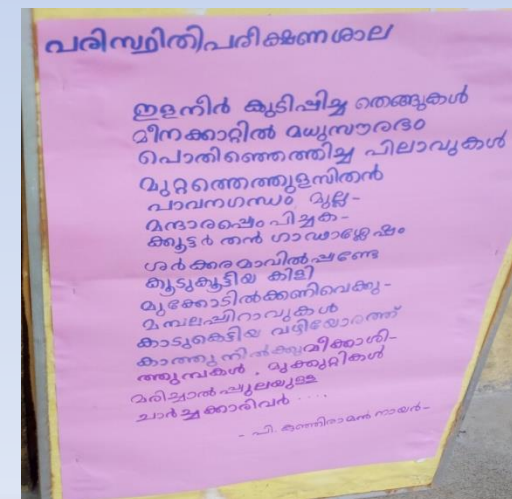 പരിസ്ഥിതിപരീക്ഷണശാല
ഇളനീർ കുടിപ്പിച്ച തെങ്ങുകൾ
മീനക്കാറ്റിൽ മധുസൗരഭം
പൊതിഞ്ഞെത്തിച്ച പിലാവുകൾ
മുറ്റത്തെത്തുളസിതൻ
പാവനഗന്ധം, മുല്ല-
മന്ദാരപ്പൈം പിച്ചക-
ക്കൂട്ടർ തൻ ഗാഢാശ്ലേഷം
ശർക്കരമാവിൽപ്പണ്ടേ
കൂടുകൂട്ടിയ കിളി
മുക്കോടിൽക്കണിവെക്കു-
മമ്പലപ്പിറാവുകൾ
കാടുകെട്ടിയ വഴിയോരത്ത്
കാത്തുനിൽക്കുമീക്കാശി-
ത്തുമ്പകൾ, മുക്കുറ്റികൾ
മരിച്ചാൽപ്പുലയുള്ള
ചാർച്ചക്കാരിവർ ....
- പി. കുഞ്ഞിരാമൻ നായർ-